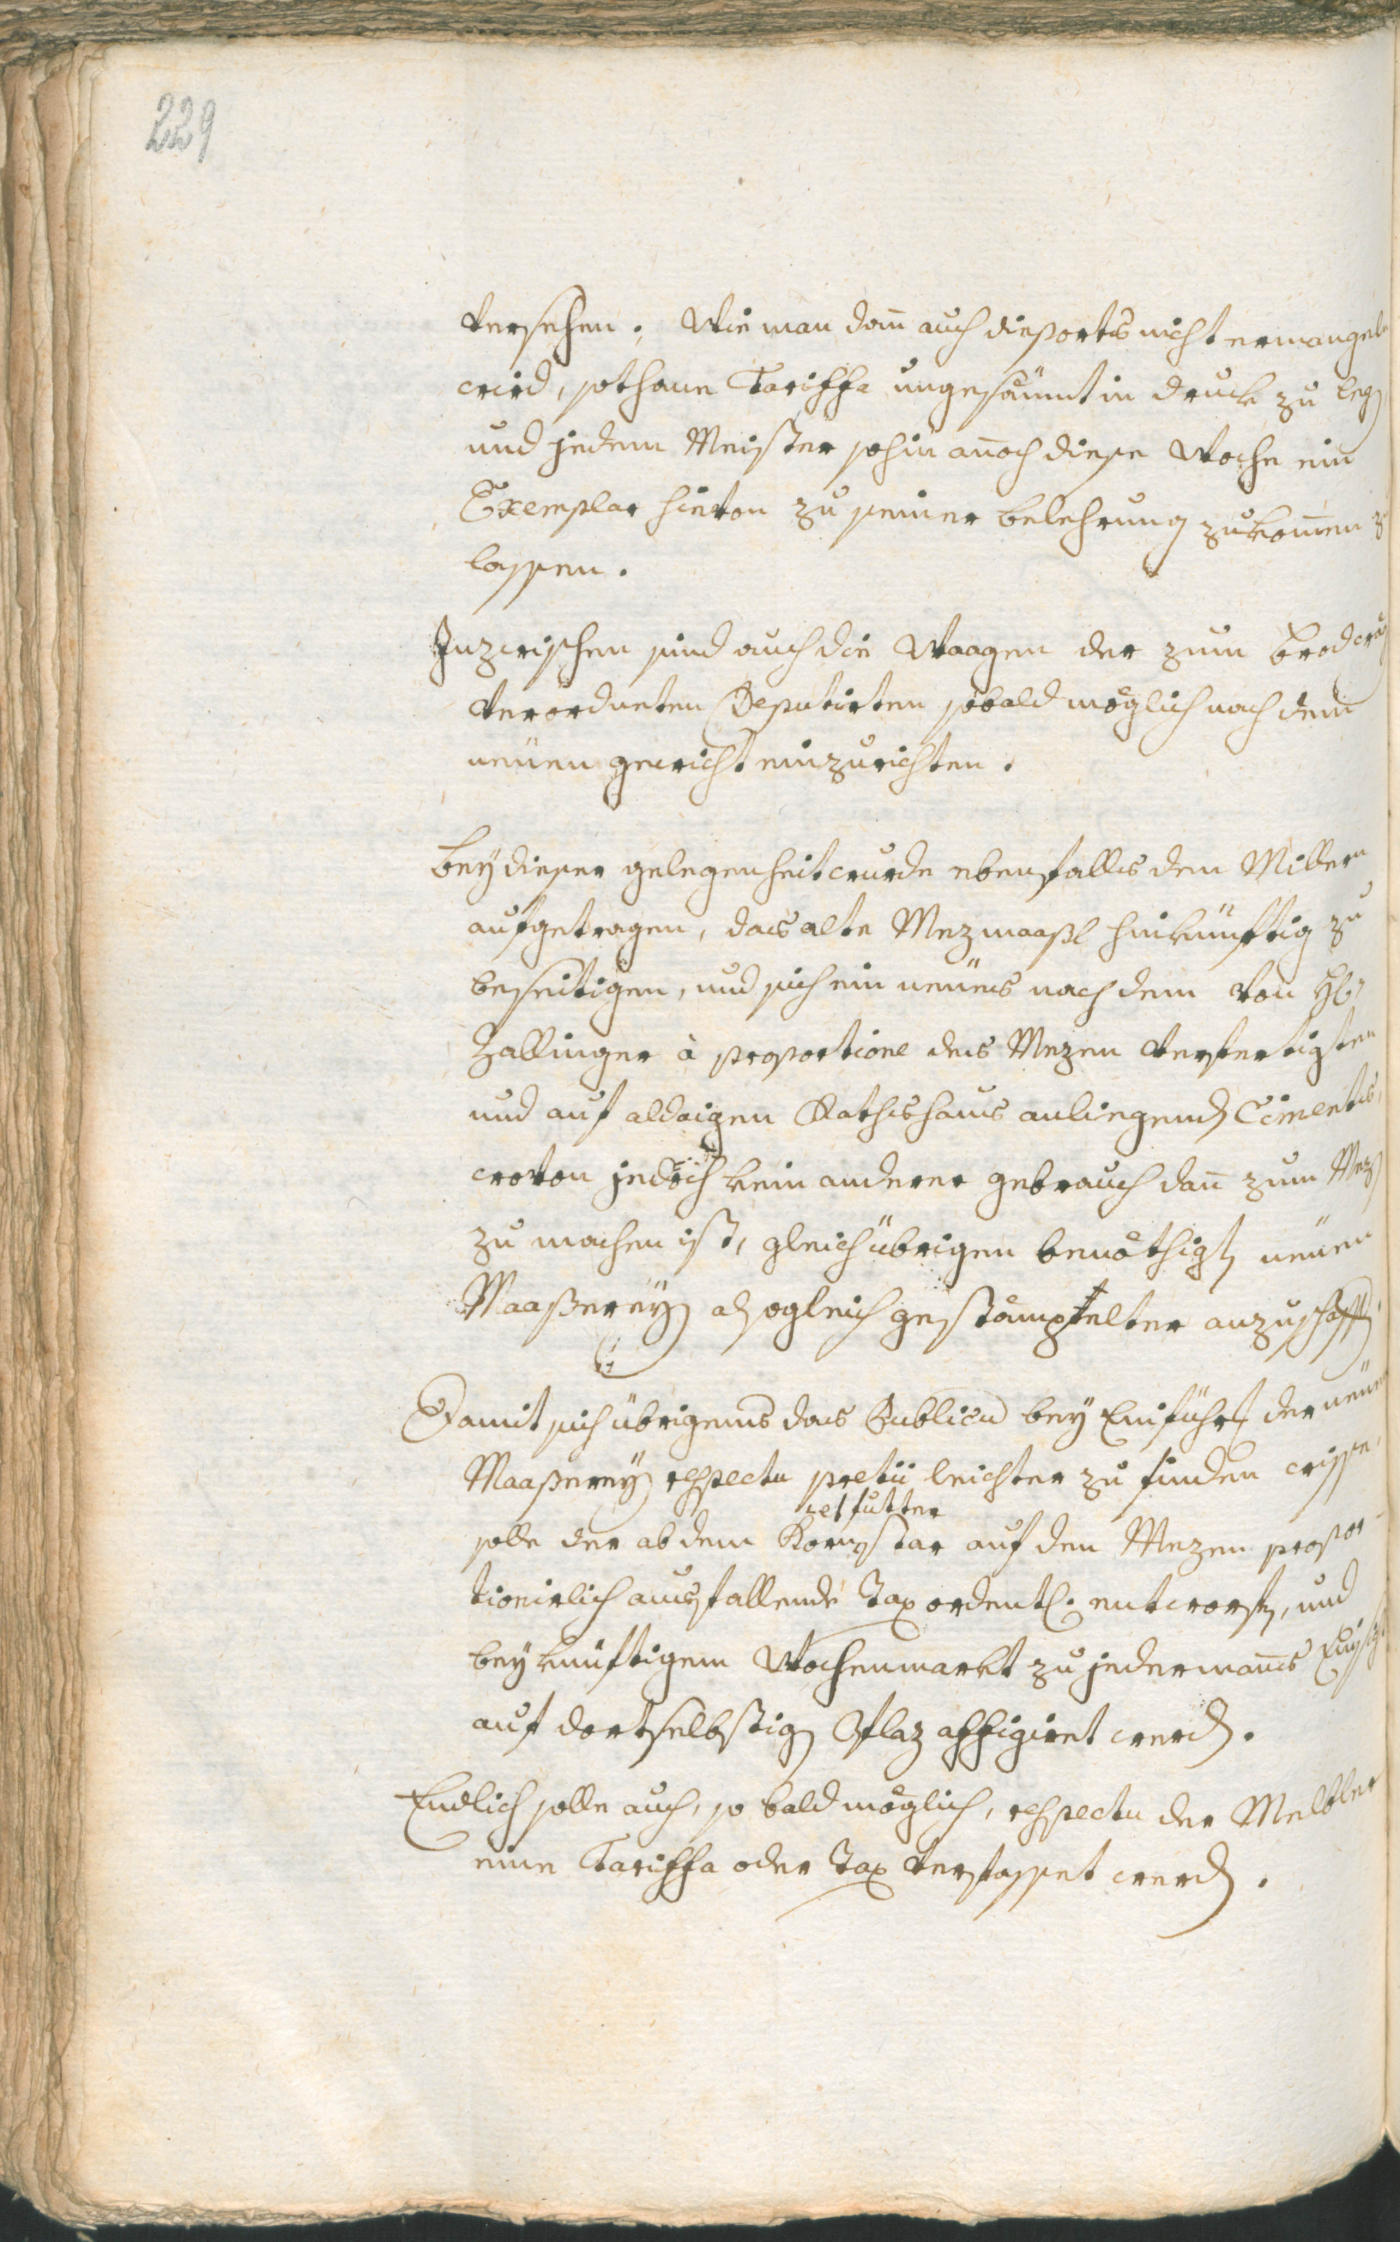 229
versehen. Wie man dan̅ auch dießorts nicht ermangeln
wird, sothane Tariffa ungesäumt in druck zu legen
und jedem Meister sohin an̅och diese Woche ein
Exemplar hievon zu seiner belehrung zukom̅en zu
lassen.
Inzwischen sind auch die Waagen der zum brodwäg
verordneten Deputirten sobald möglich nach dem
neüen gewicht einzurichten.
bey dieser gelegenheit wurde ebenfalls den Millern
aufgetragen, das alte Mezmaaßl hinkünftig zu
beseitigen, und sich ein neües nach dem von H:
Zallinger à proportione des Mezen verfertigten
und auf aldaigen Rathshaus anliegenden Ciments,
wovon jedoch kein anderer gebrauch dan̅ zum Mezen
zu machen ist, gleich übrigen benöthigten neüen
Maaßereyen alsogleich gestämpfelter anzuschaffen.
Damit sich übrigens das Publicu̅ bey Einführung der neüen
Maaßerey respectu pretii leichter zu finden wisse,
vel futter
solle der ab dem Kornstar auf den Mezen propor-
tionirlich ausfallende Tax ordentl. entworfen, und
bey künftigem Wochenmarkt zu jedermans Einsicht
auf dortselbstigen Plaz affigiret werden.
Endlich solle auch, so bald möglich, respectu der Melbler
eine Tariffa oder Tax verfasset werden.